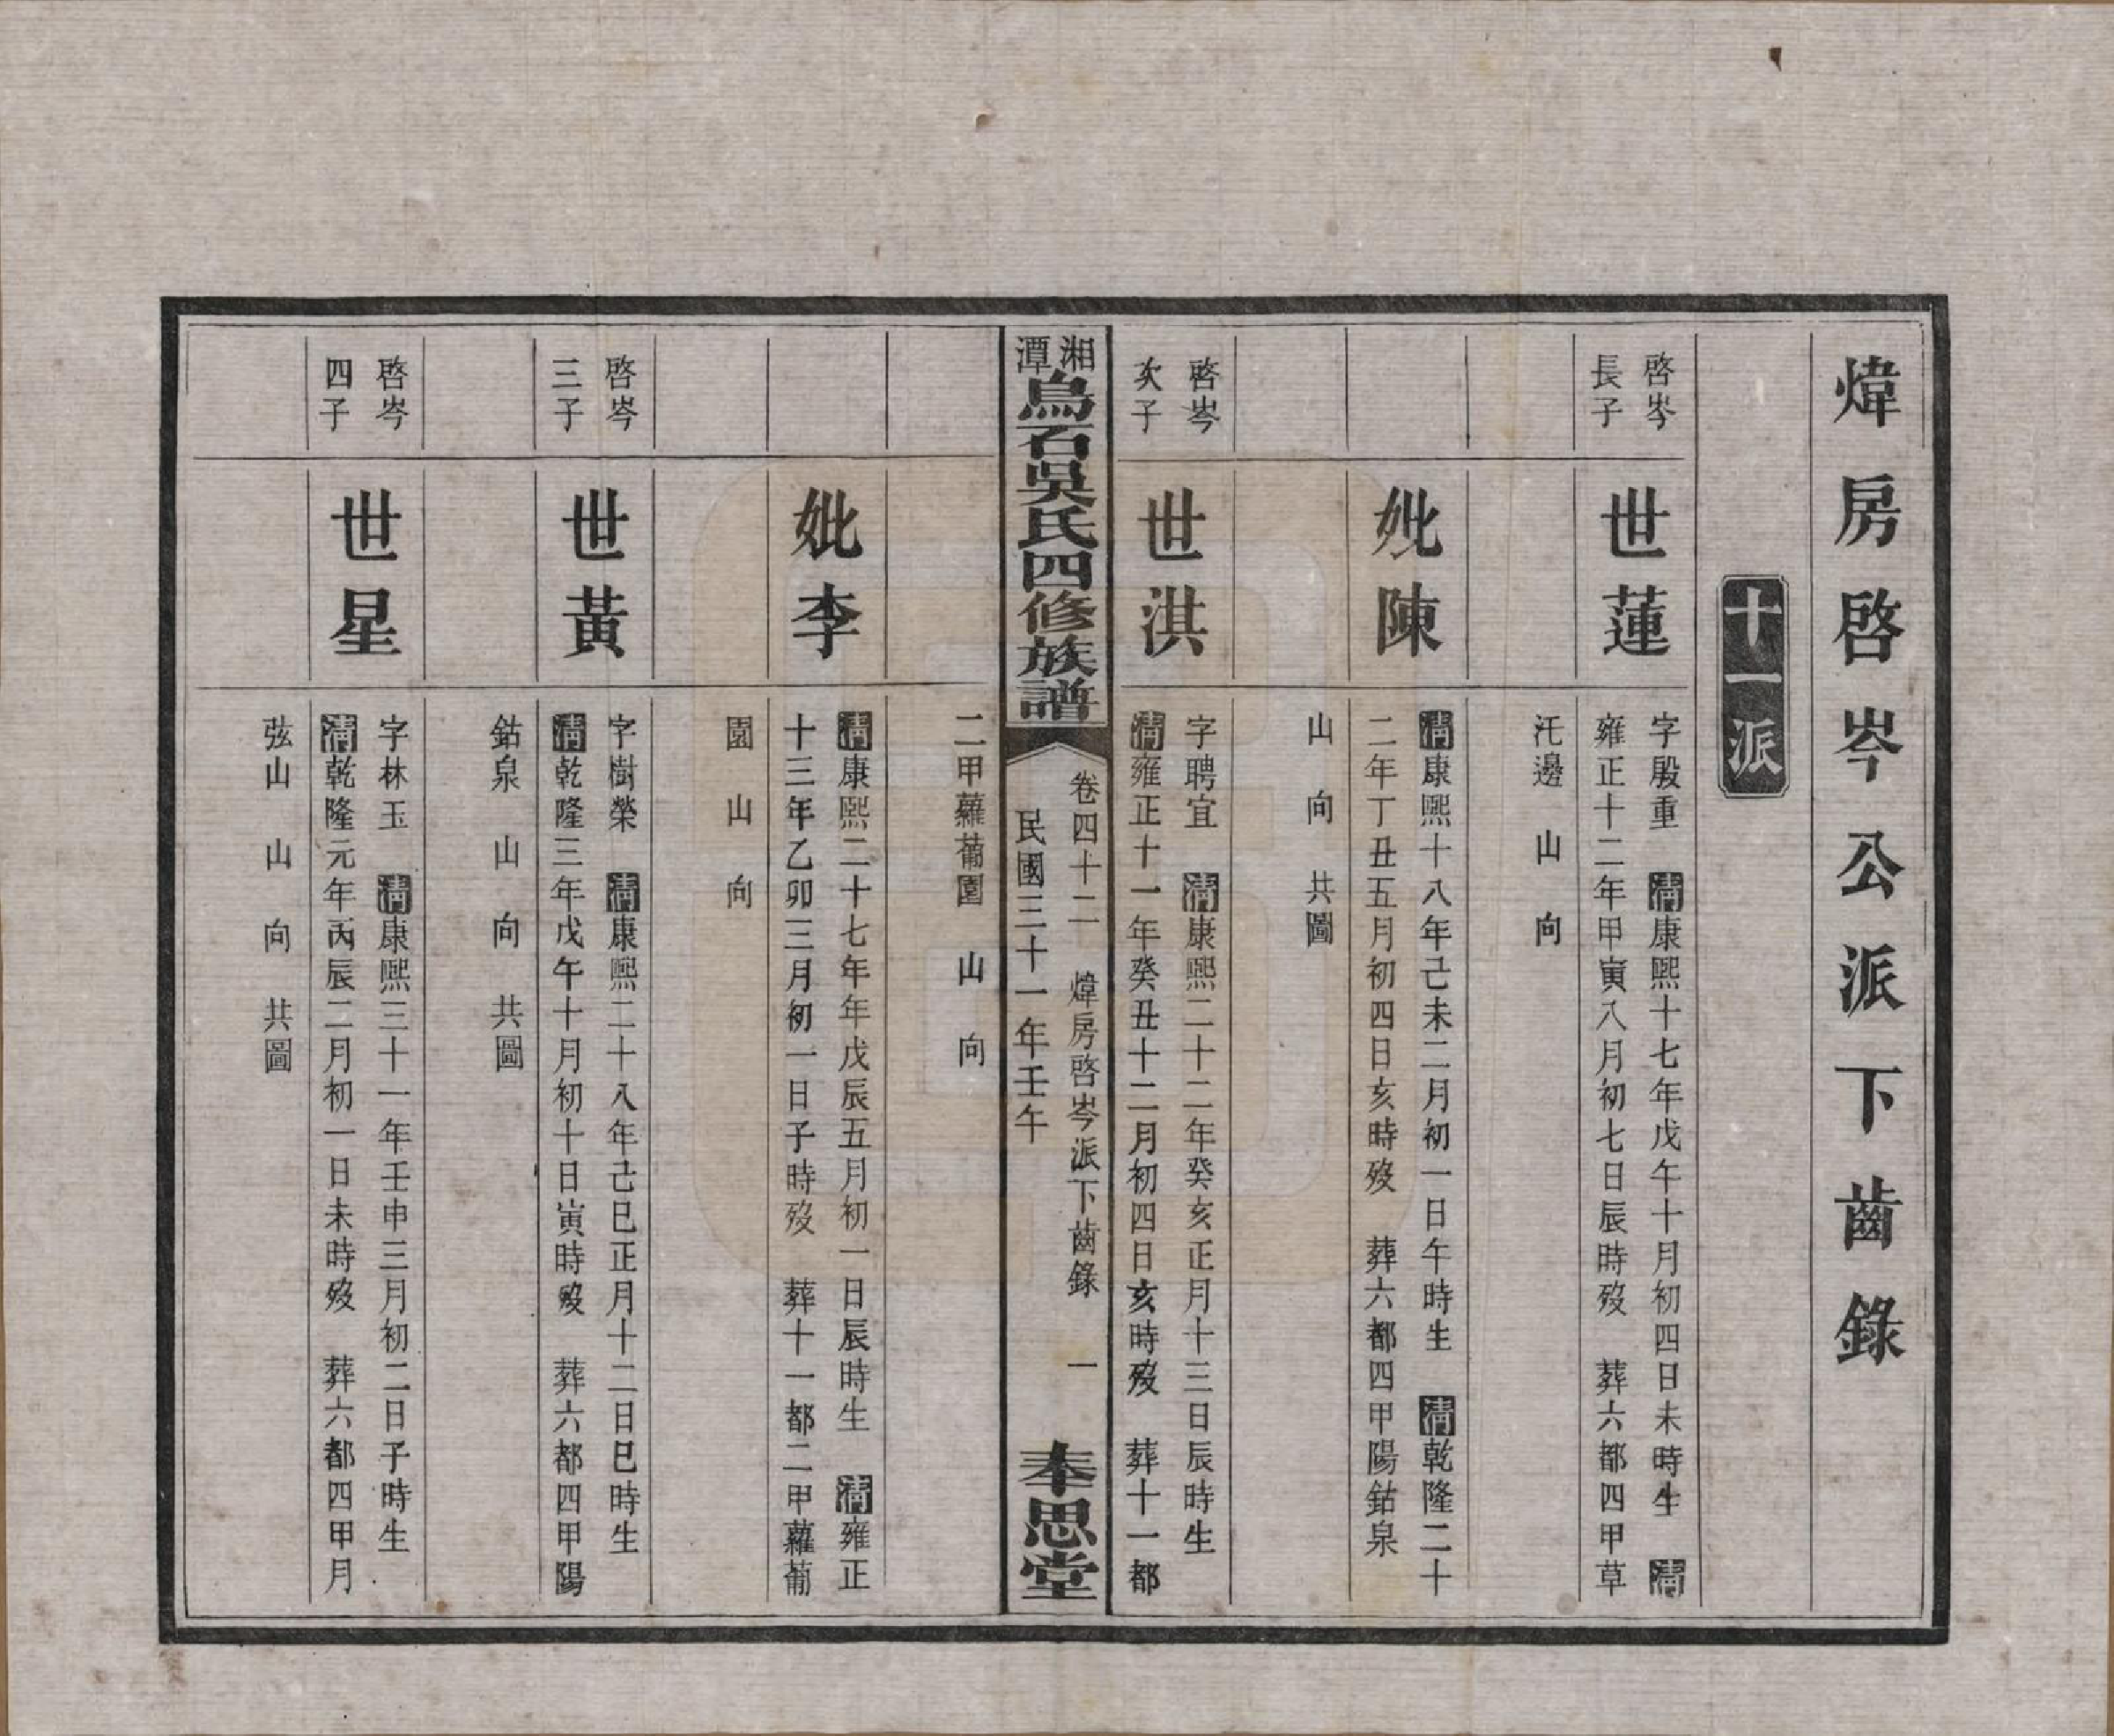 煒房啓岑公派下齒錄
十一派
啓岑
長子
世蓮
字殿重 清康熙十七年戊午十月初四日未時生 清
雍正十二年甲寅八月初七日辰時歿 葬六都四甲草
汑邊 山 向
妣陳
清康熙十八年己未二月初一日午時生 清乾隆二十
二年丁丑五月初四日亥時歿 葬六都四甲陽鈷泉
山 向 共圖
啓岑
次子
世淇
字聘宜 清康熙二十二年癸亥正月十三日辰時生
清雍正十一年癸丑十二月初四日亥時歿 葬十一都
湘潭烏石吳氏四修族譜
卷四十二 煒房啓岑派下齒錄 一
民國三十一年壬午
奉思堂
二甲蘿蔔園 山 向
妣李
清康熙二十七年年戊辰五月初一日辰時生 清雍正
十三年乙卯三月初一日子時歿 葬十一都二甲蘿蔔
園 山 向
啓岑
三子
世黃
字樹榮 清康熙二十八年己巳正月十二日巳時生
清乾隆三年戊午十月初十日寅時歿 葬六都四甲陽
鈷泉 山 向 共圖
啓岑
四子
世星
字林玉 清康熙三十一年壬申三月初二日子時生
清乾隆元年丙辰二月初一日未時歿 葬六都四甲月
弦山 山 向 共圖